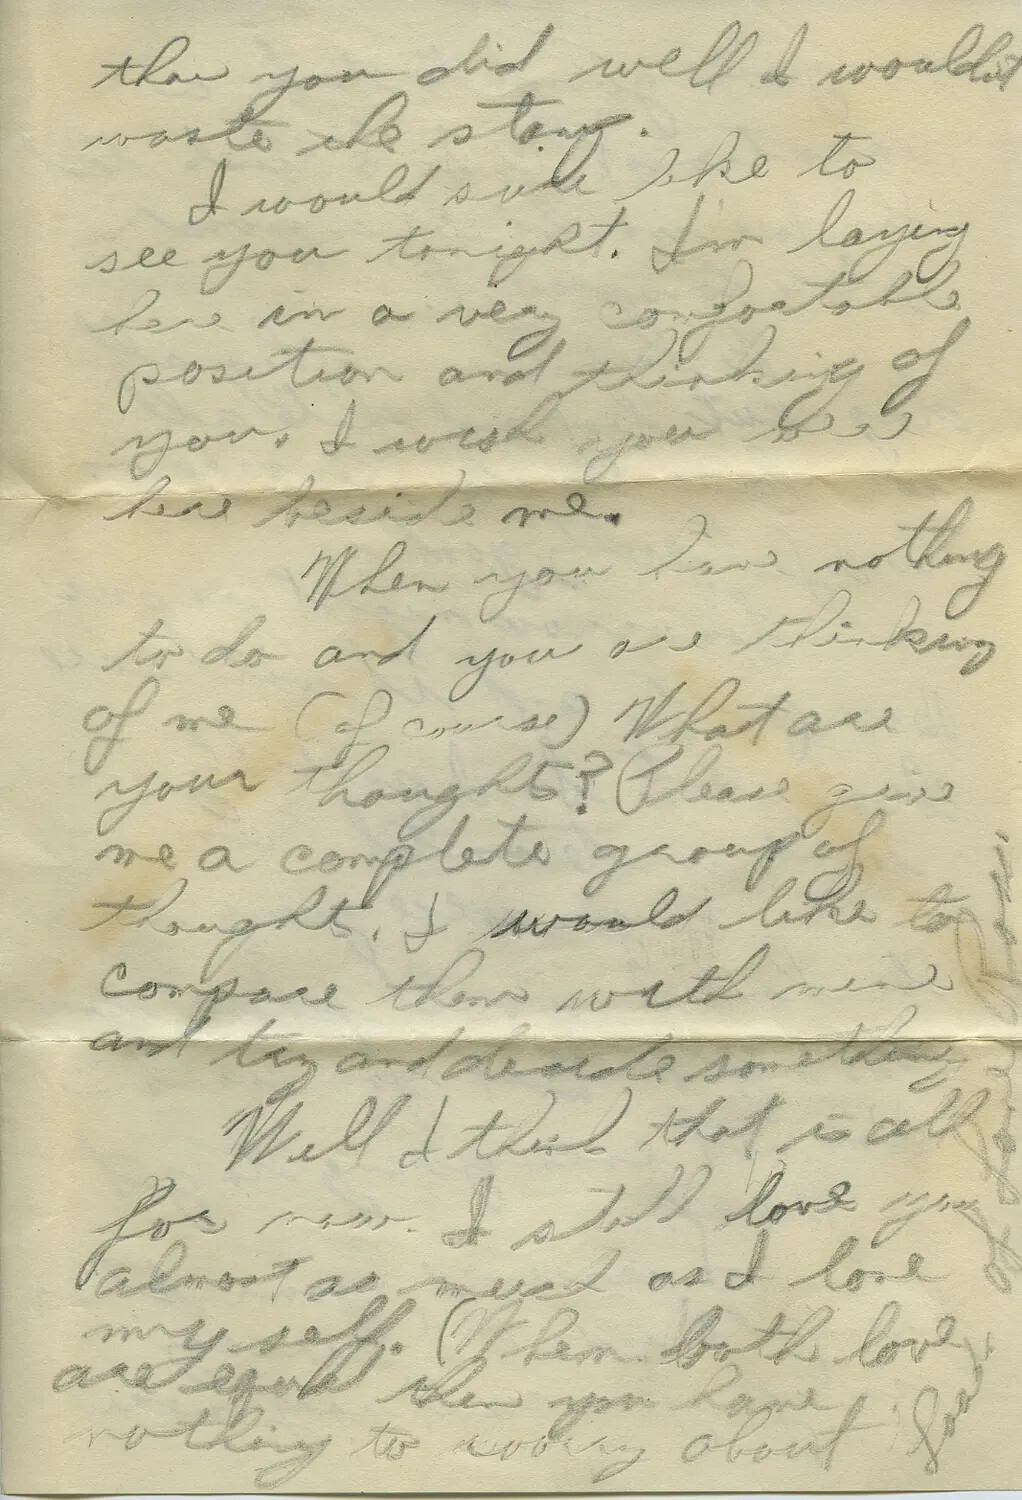 than you did well I wouldn't
waste the stamp.
I would sure like to
see you tonight. I'm laying
here in a very comfortable
position and thinking of
you. I wish you were
here beside me.
When you have nothing
to do and you are thinking
of me (of course) What are
your thoughts? Please give
me a complete group of
thought. I would like to
compare them with mine
and try and decide something
Well I think that is all
for now. I still love you
almost as much as I love
my self. (When both love
are equal then you have
nothing to worry about